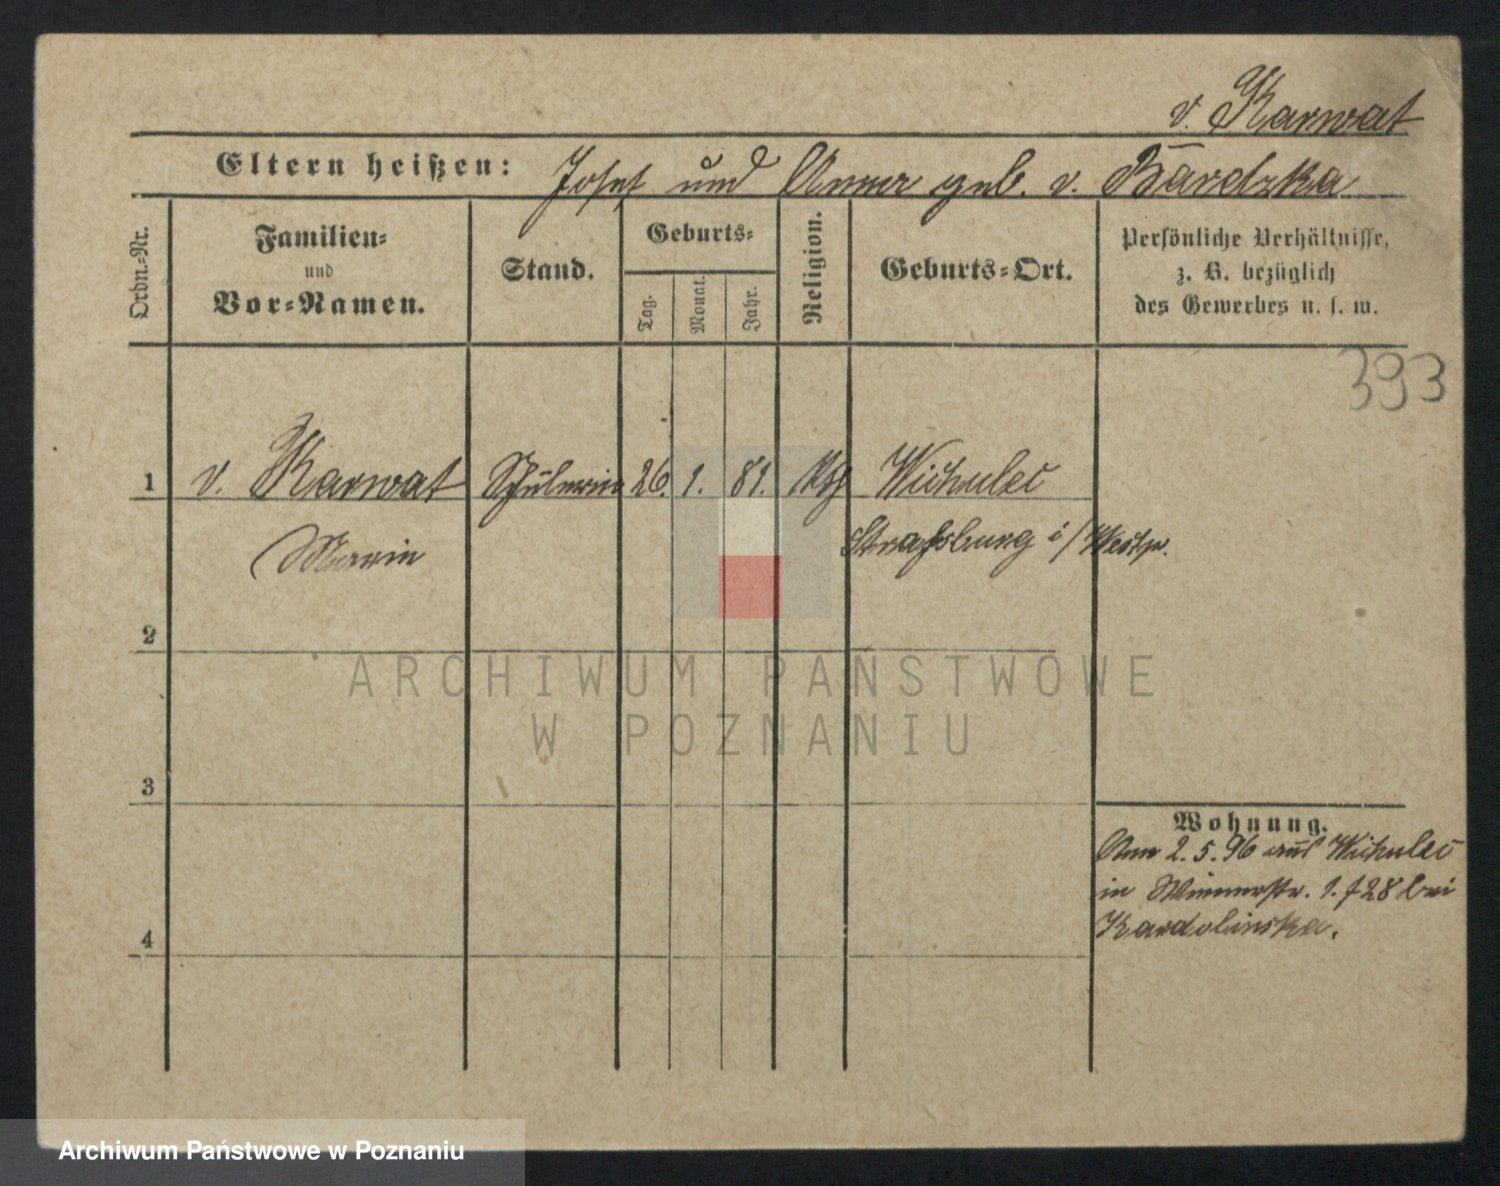 v. Karwat
Eltern heißen: Josef und Anna geb. v. Bardzka
Ordn.-Nr.
Familien-
und
Vor-Namen.
Stand.
Geburts-
Tag.
Monat.
Jahr.
Religion.
Geburts-Ort.
Persönliche Verhältnisse,
z. B. bezüglich
des Gewerbes u. s. w.
393
1 v. Karwat Schülerin 26. 1. 81. Wichulec
Marie Strassburg i/Westpr.
2
3
4
Wohnung.
Am 2.5.96 aus Wichulec
in Wienerstr. 1. bei
Kardolinska.
ARCHIWUM PAŃSTWOWE
W POZNANIU
Archiwum Państwowe w Poznaniu